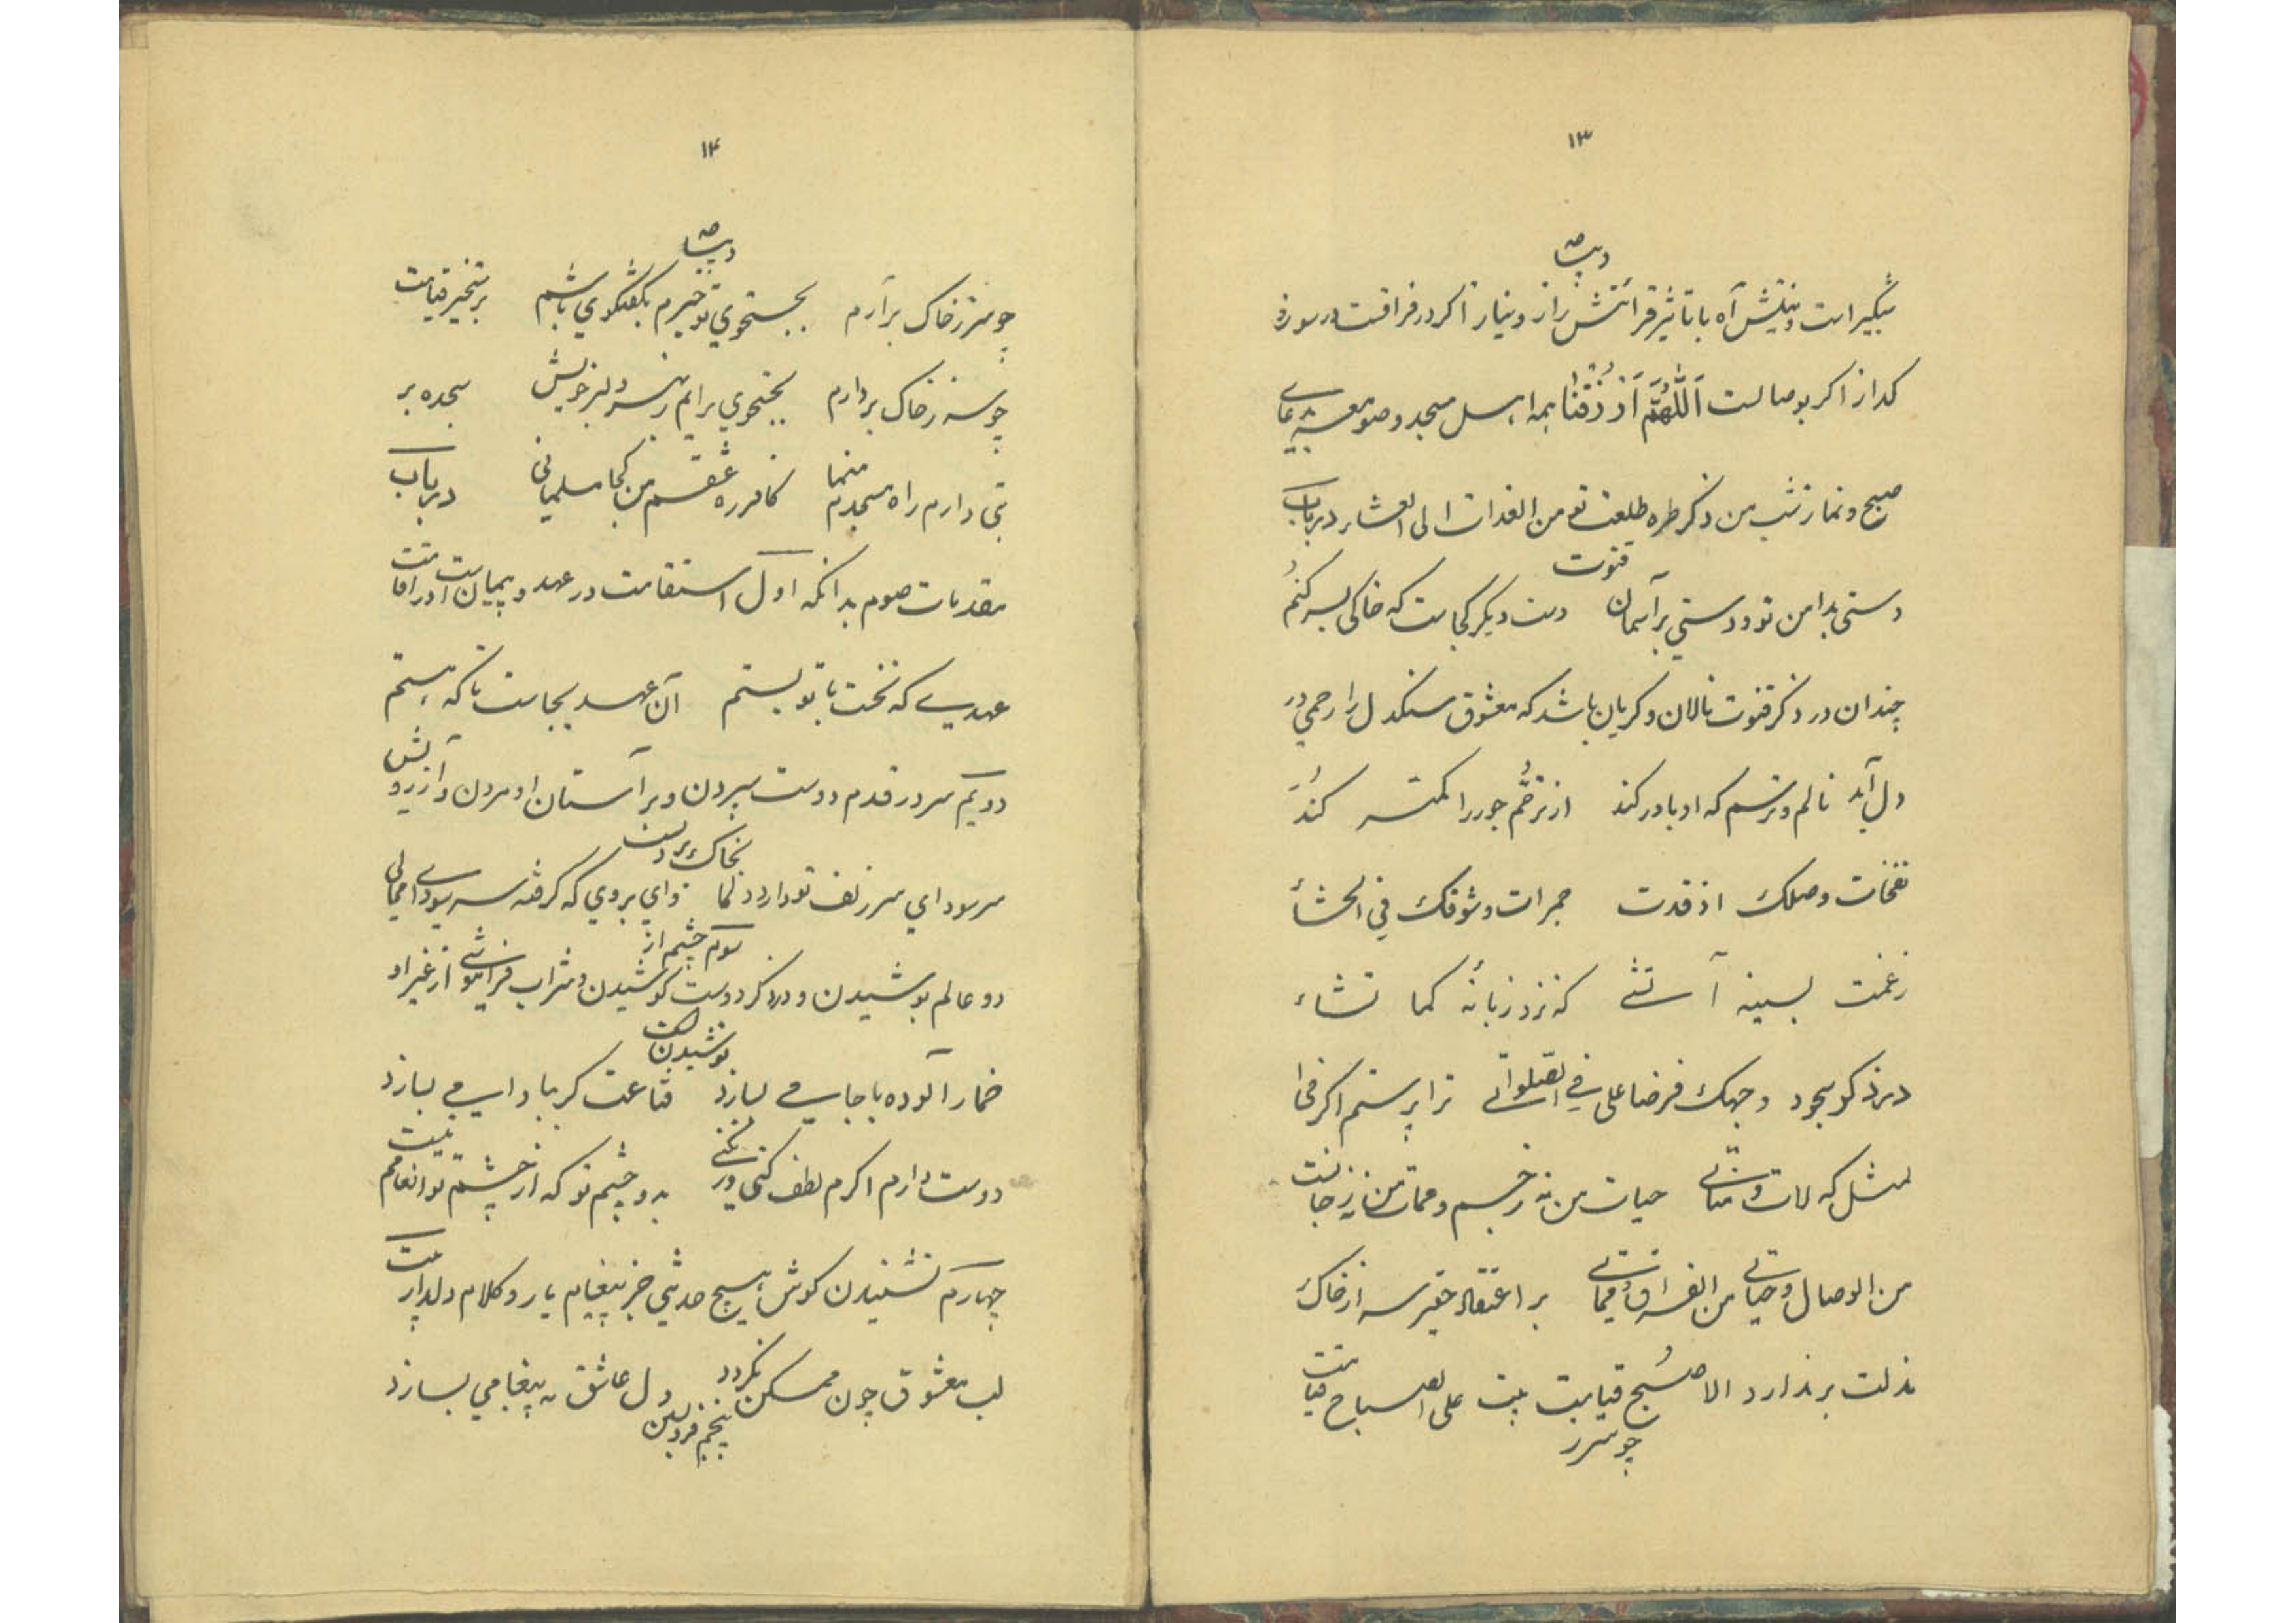 ۱۳
دیباچه
تکبیراست و نیتش آه با تاثیر قرائتش راز و نیاز اگر در فراقست در سوز و
گداز اگر بوصالست اَللّٰهُمَّ اَرْزُقْنَا همه اهل مسجد و صومعه پی دعای
صبح و نماز شب من و ذکر طره طلعت تو من الغدات الی العشاء در باب
قنوت
دستی بدامن تو و دستی بر آسمان دست دیگر کجاست که خاکی بسر کنم
چندان در ذکر قنوت نالان و گریان باشد که معشوق سنگدل را رحمی در
دل آید نالم و ترسم که او باور کند از ترحّم جور را کمتر کند
نفخات وصلک اوقدت جمرات شوقک فی الحشا
ز غمت بسینه آتشی که نزد زبانه کما تشاء
در ذکر سجود وجهک فرضا علی فی الصلواتی ترا پرستم اگر فی ا
لمثل که لات و مناتی حیات من نه ز جسم و ممات من نه ز جانست
من الوصال و حیاتی من الفراق و مماتی بر اعتقاد حقیر سر از خاک
مذلت بر ندارد الا صبح قیامت بیت علی الصباح قیامت
چو سر ز
۱۴
دیباچه
چو سر ز خاک برآرم بجستجوی تو خیزم بگفتگوی تو باشم برستخیز قیامت
چو سر ز خاک بردارم بجستجوی برایم سر دلبر خویش سجده بر
بتی دارم راه مسجدم منما کافر ره عشقم من کجا مسلمانی در باب
مقدمات صوم بدانکه اول استقامت در عهد و پیمان است و در اقامت
عهدی که نخست با تو بستم آن عهد بجاست تا که هستم
دویم سر در قدم دوست سپردن و بر آستان او مردن و آرزویش
بخاک بردن
سر سودای سر زلف تو دارد دلما وای بروی که گرفته سر سودای محالی
سوم چشم از
دو عالم پوشیدن و در ذکر دوست کوشیدن و شراب فراموشی از غیر او
نوشیدن
خمار آلوده با جامی بسازد قناعت گر بباد امی بسازد
دوست دارم اگرم لطف کنی ور نکنی بدو چشم تو که از چشم تو انعامم نیست
چهارم نشنیدن گوش هیچ حدیثی جز پیغام یار و کلام دلدار بیت
لب معشوق چون ممکن نگردد دل عاشق به پیغامی بسازد
پنجم فرو بستن